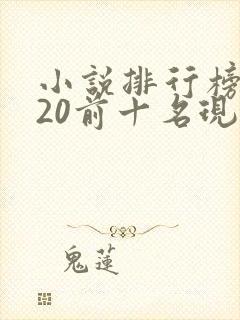 小説排行榜
20前十名現
鬼蓮